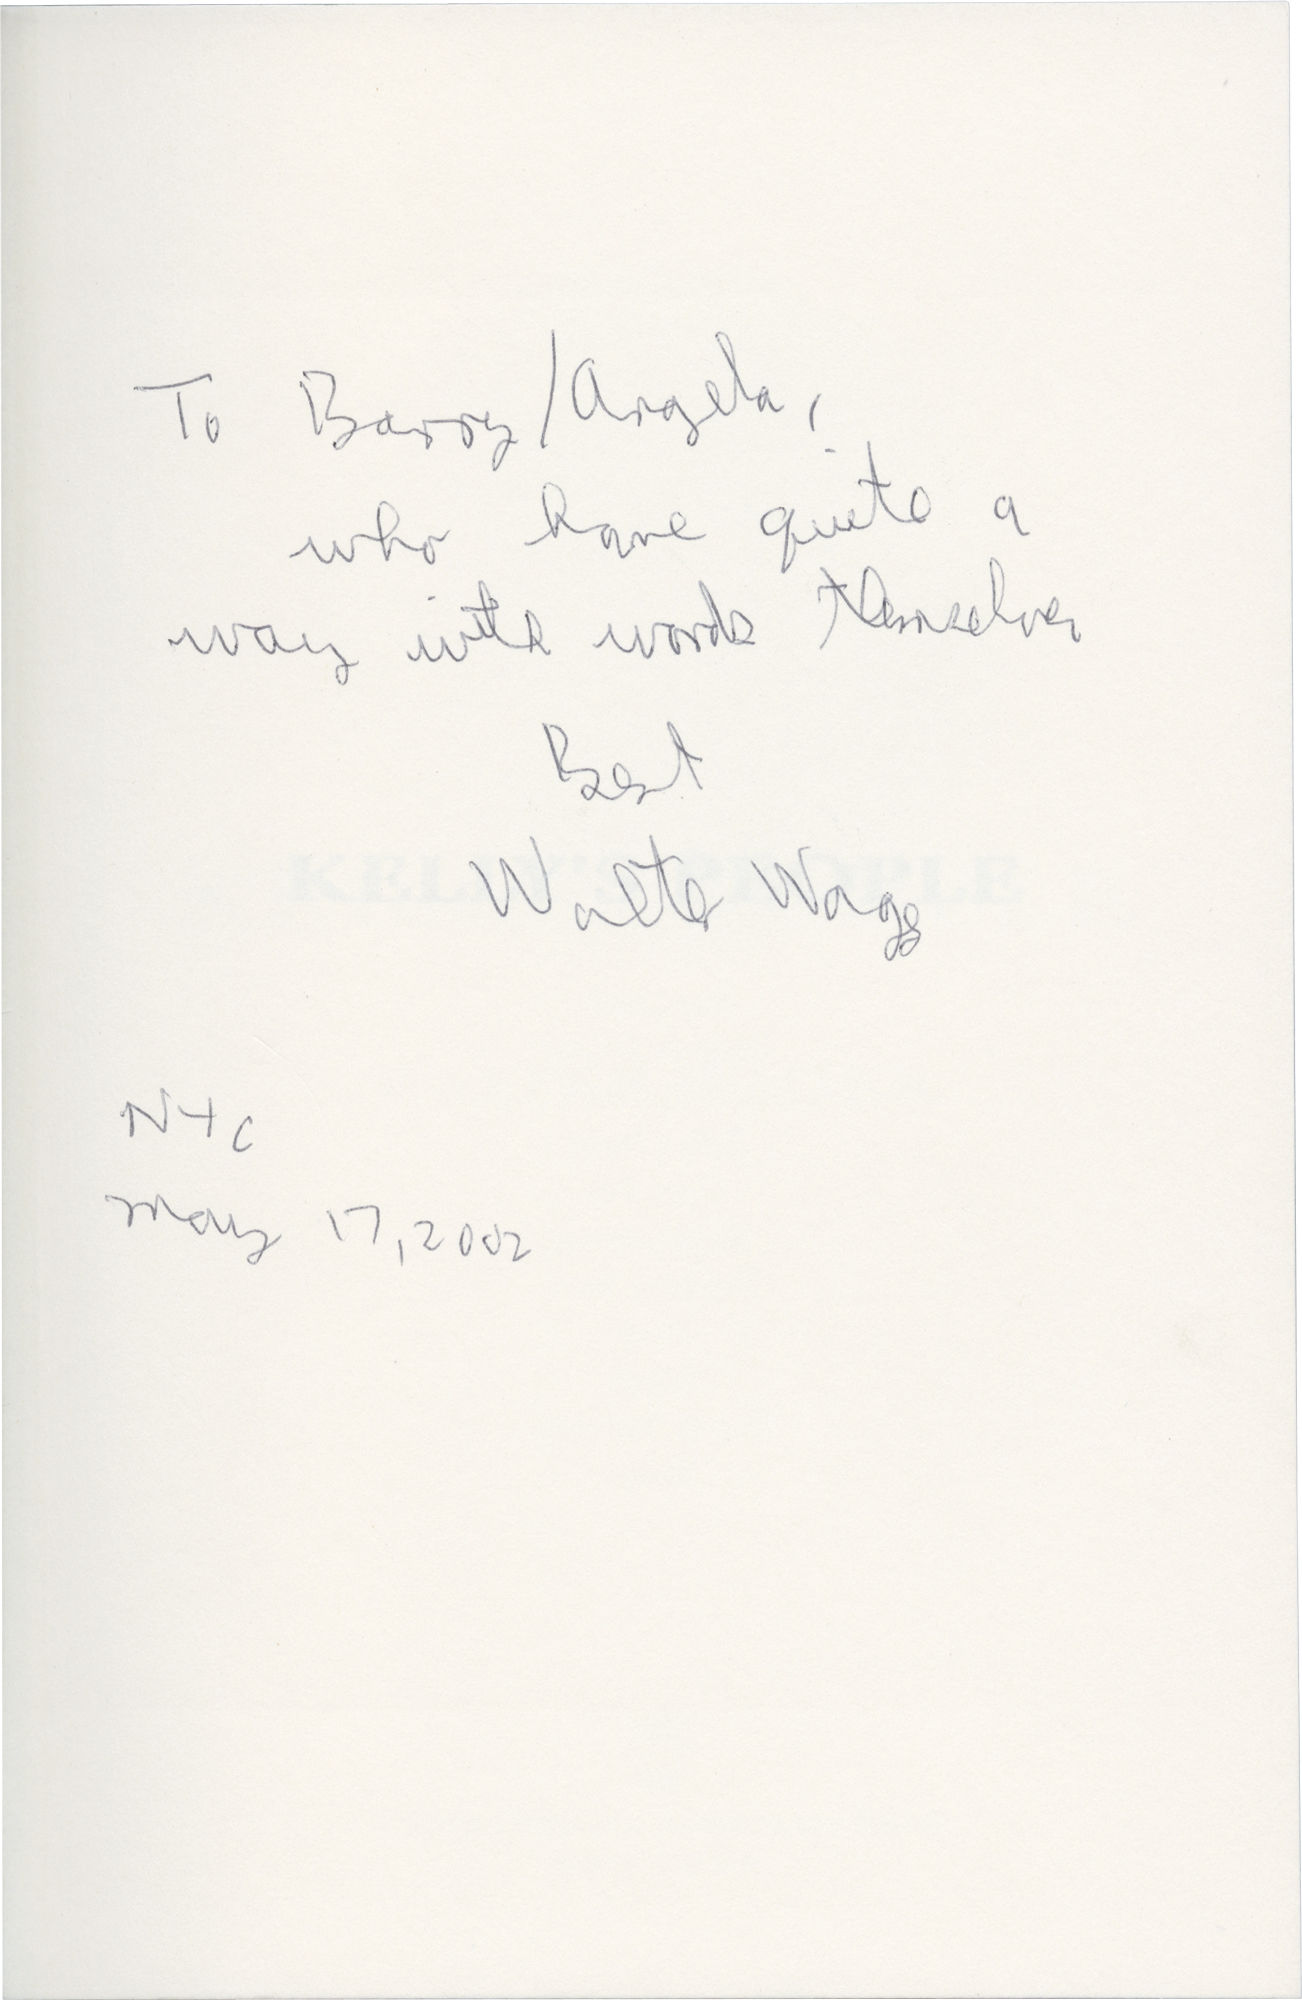 To Barry/Angela,
who have quite a
way with words themselves
Best
Walter Wager
KELLY'S PEOPLE
NYC
May 17, 2002